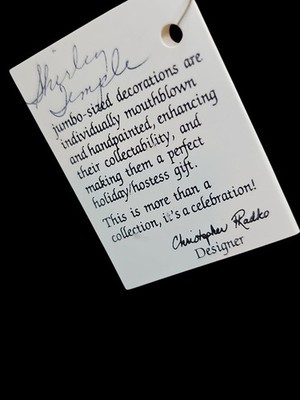 Shirley
Temple
jumbo-sized decorations are
individually mouthblown
and handpainted, enhancing
their collectability, and
making them a perfect
holiday/hostess gift.
This is more than a
collection, it's a celebration!
Christopher Radko
Designer